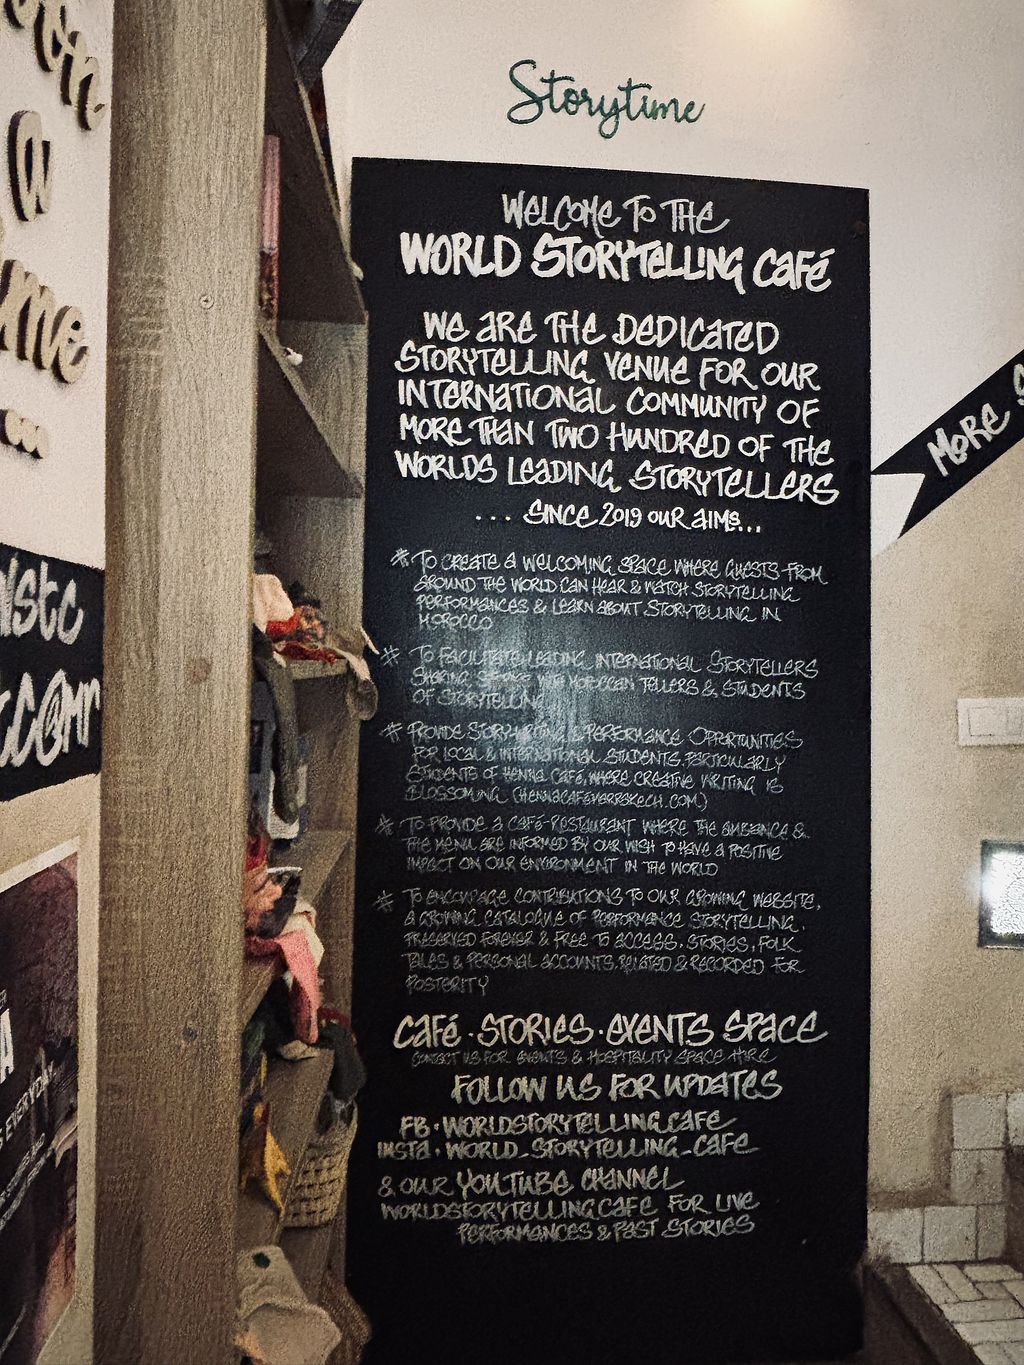 Storytime
WELCOME TO THE
WORLD STORYTELLING CAFÉ
WE ARE THE DEDICATED
STORYTELLING VENUE FOR OUR
INTERNATIONAL COMMUNITY OF
MORE THAN TWO HUNDRED OF THE
WORLDS LEADING STORYTELLERS
... SINCE 2019 OUR AIMS...
* TO CREATE A WELCOMING SPACE WHERE GUESTS FROM
AROUND THE WORLD CAN HEAR & WATCH STORYTELLING
PERFORMANCES & LEARN ABOUT STORYTELLING IN
MOROCCO
* TO FACILITATE LEADING INTERNATIONAL STORYTELLERS
SHARING MOROCCAN TELLERS & STUDENTS
OF STORYTELLING
* PROVIDE STORYWRITING & PERFORMANCE OPPORTUNITIES
FOR LOCAL & INTERNATIONAL STUDENTS, PARTICULARLY
STUDENTS OF HENNA CAFÉ, WHERE CREATIVE WRITING IS
BLOSSOMING (HENNACAFÉMARRAKECH.COM)
* TO PROVIDE A CAFÉ-RESTAURANT WHERE THE AMBIANCE &
THE MENU ARE INFORMED BY OUR WISH TO HAVE A POSITIVE
IMPACT ON OUR ENVIRONMENT IN THE WORLD
* TO ENCOURAGE CONTRIBUTIONS TO OUR GROWING WEBSITE,
A GROWING CATALOGUE OF PERFORMANCE STORYTELLING,
PRESERVED FOREVER & FREE TO ACCESS. STORIES, FOLK
TALES & PERSONAL ACCOUNTS, RELATED & RECORDED FOR
POSTERITY
CAFÉ · STORIES · EVENTS SPACE
CONTACT US FOR EVENTS & HOSPITALITY SPACE HIRE
FOLLOW US FOR UPDATES
FB · WORLDSTORYTELLINGCAFE
INSTA · WORLD_STORYTELLING_CAFE
& OUR YOUTUBE CHANNEL
WORLDSTORYTELLINGCAFE FOR LIVE
PERFORMANCES & PAST STORIES
MORE
a
EVERYDAY